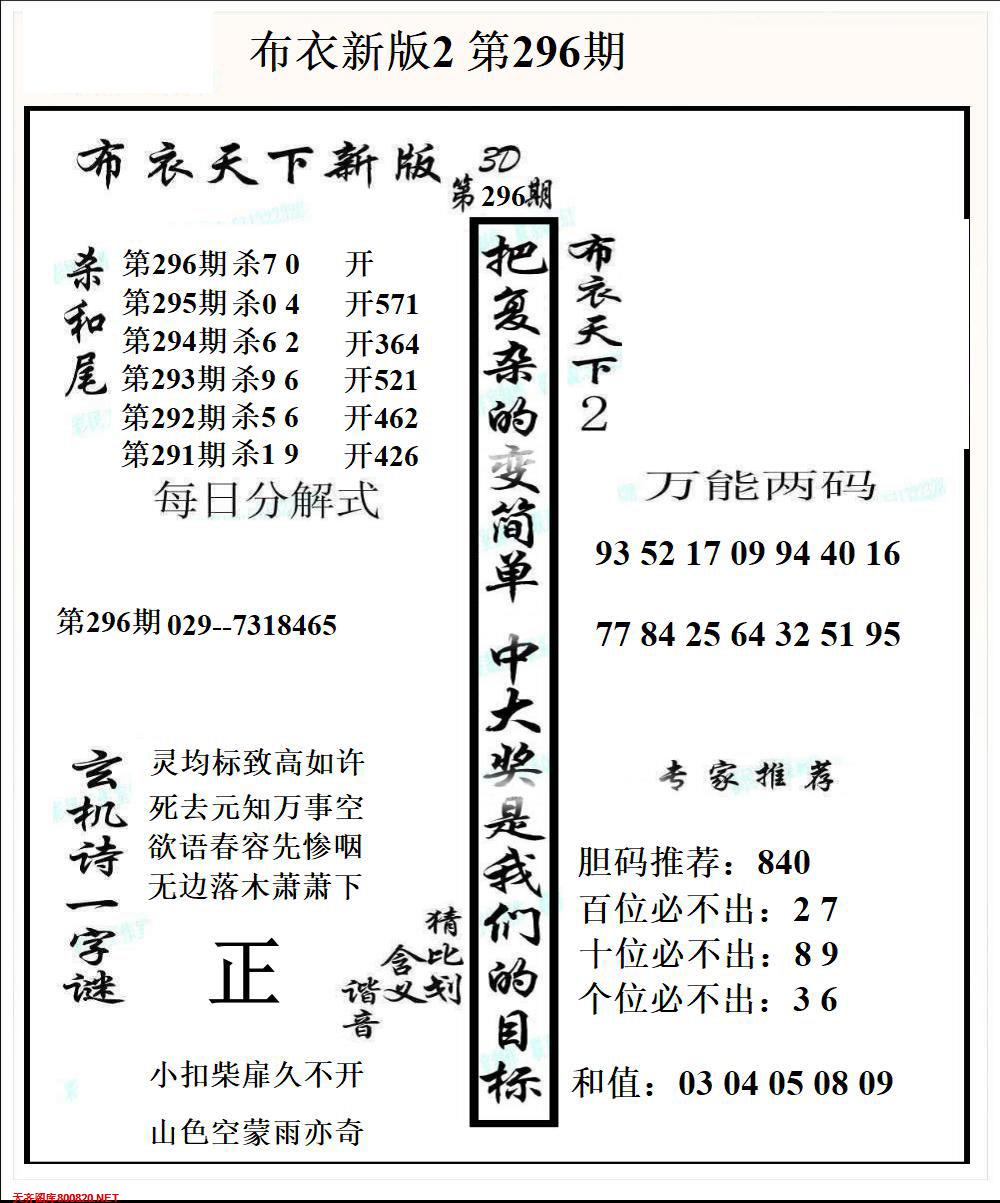 布衣新版2 第296期
布衣天下新版 3D
第296期
杀和尾
第296期 杀7 0 开
第295期 杀0 4 开571
第294期 杀6 2 开364
第293期 杀9 6 开521
第292期 杀5 6 开462
第291期 杀1 9 开426
每日分解式
第296期 029--7318465
玄机诗一字谜
灵均标致高如许
死去元知万事空
欲语春容先惨咽
无边落木萧萧下
正
猜比划
含义
谐音
小扣柴扉久不开
山色空蒙雨亦奇
把复杂的变简单 中大奖是我们的目标
布衣天下2
万能两码
93 52 17 09 94 40 16
77 84 25 64 32 51 95
专家推荐
胆码推荐：840
百位必不出：2 7
十位必不出：8 9
个位必不出：3 6
和值：03 04 05 08 09
天齐图库800820.NET